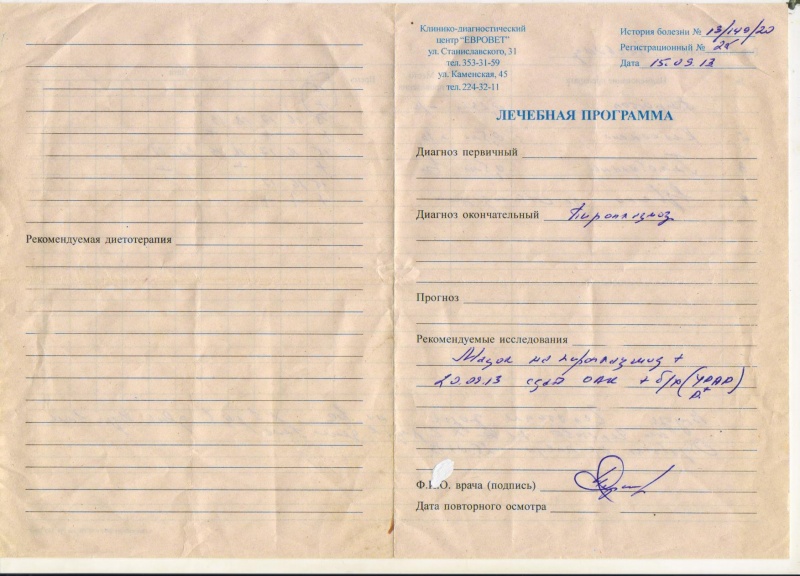 Рекомендуемая диетотерапия
Клинико-диагностический
центр "ЕВРОВЕТ"
ул. Станиславского, 31
тел. 353-31-59
ул. Каменская, 45
тел. 224-32-11
История болезни № 13/149/20
Регистрационный №
Дата 15.09.13
ЛЕЧЕБНАЯ ПРОГРАММА
Диагноз первичный
Диагноз окончательный Пироплазмоз
Прогноз
Рекомендуемые исследования
Мазок на пироплазмоз +
20.09.13 сдать ОАК + б/х
Ф.И.О. врача (подпись)
Дата повторного осмотра